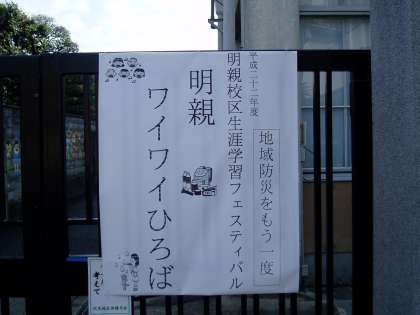 平成二十二年度
明親校区生涯学習フェスティバル
地域防災をもう一度
明親
ワイワイひろば